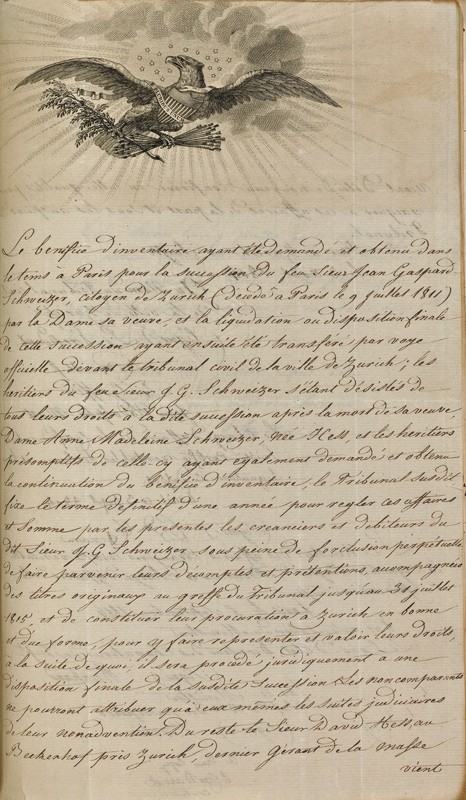 Le benifice d'inventaire ayant été demandé et obtenu dans
le tems à Paris pour la succession du feu Sieur Jean Gaspard
Schweizer, citoyen de Zurich (décédé à Paris le 9 juillet 1811)
par la Dame sa veuve, et la liquidation ou disposition finale
de cette succession ayant ensuite été transferé par voye
officielle devant le tribunal civil de la ville de Zurich; les
heritiers du feu Sieur J. G. Schweizer s'étant désistés de
tout leurs droits à la dite succession après la mort de sa veuve,
Dame Anne Madeleine Schweizer, née Hess, et les heritiers
présomptifs de celle-cy ayant également demandé et obtenu
la continuation du benifice d'inventaire, le Tribunal susdit
fixe le terme definitif d'une année pour regler ces affaires
et somme par les presentes les creanciers et debiteurs du
dit Sieur J. G Schweizer sous peine de forclusion perpetuelle,
de faire parvenir leurs décomptes et prétentions, accompagnées
des titres originaux au greffe du Tribunal jusqu'au 31 juillet
1815, et de constituer leur procuration à Zurich en bonne
et due forme, pour y faire representer et valoir leurs droits,
à la suite de quoi il sera procédé juridiquement à une
disposition finale de la susdite succession. Les noncomparants
ne pourront attribuer qu'à eux mêmes les suites judiciaires
de leur nonadvention. Du reste le Sieur David Hess au
Beckenhof près Zurich, dernier Gérant de la masse
vient